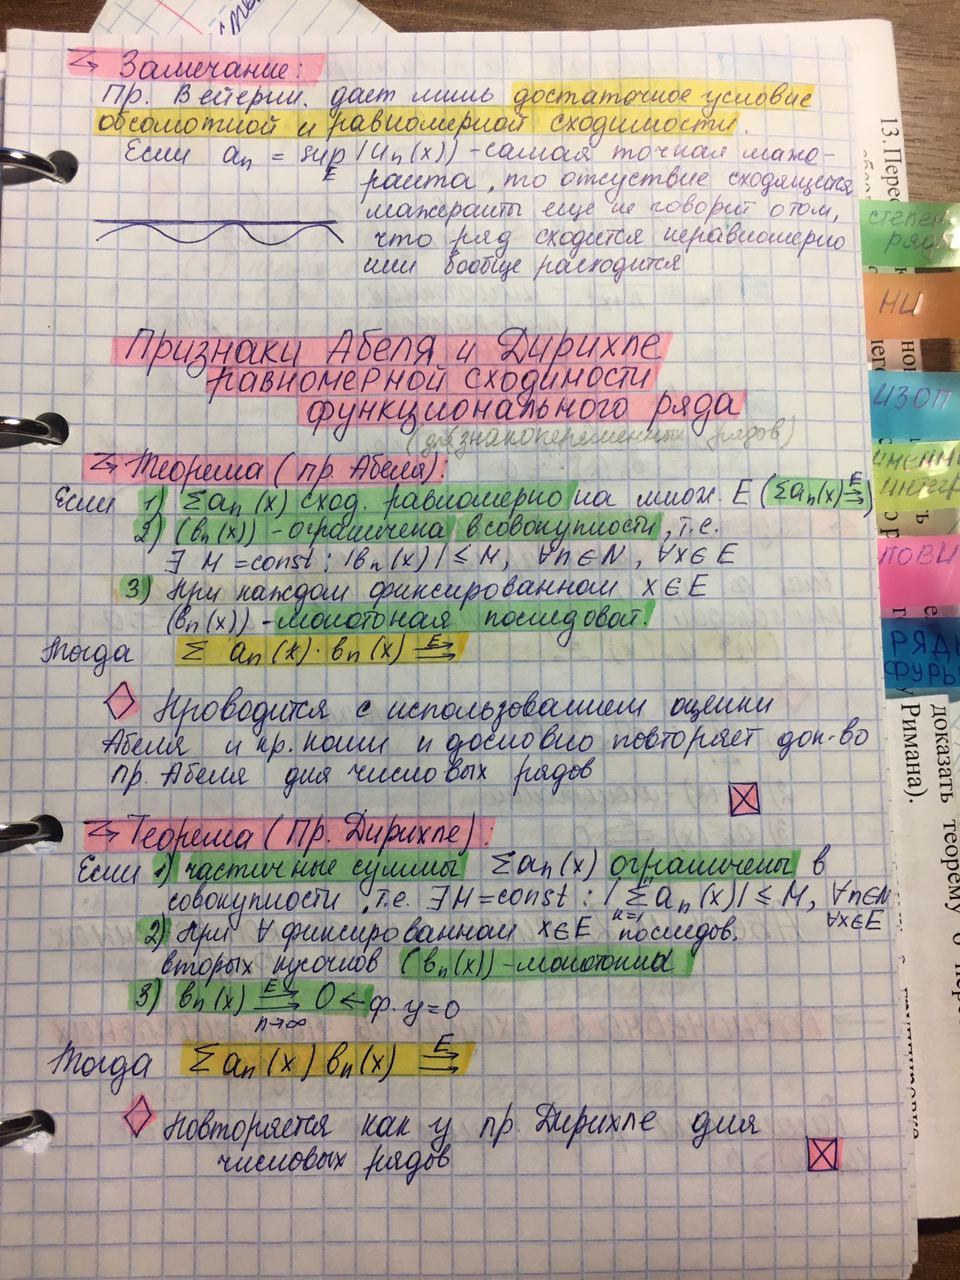 Замечание:
Пр. Вейерш. дает лишь достаточное условие
абсолютной и равномерной сходимости.
Если aₙ = sup |uₙ(x)| - самая точная мажо-
E
ранта, то отсуствие сходящейся
мажеранты еще не говорит о том,
что ряд сходится неравномерно
или вообще расходится
Признаки Абеля и Дирихле
равномерной сходимости
функционального ряда
(для знакопеременных рядов)
Теорема (пр. Абеля):
Если 1) Σaₙ(x) сход. равномерно на множ. E (Σaₙ(x) ⇉ᴱ)
2) (bₙ(x)) - ограничена в совокупности, т.е.
∃ M = const : |bₙ(x)| ≤ M, ∀n∈N, ∀x∈E
3) При каждом фиксированном x∈E
(bₙ(x)) - монотоная последоват.
Тогда Σ aₙ(x)·bₙ(x) ⇉ᴱ
Проводится с использованием оценки
Абеля и кр. Коши и дословно повторяет док-во
пр. Абеля для числовых рядов
Теорема (Пр. Дирихле):
Если 1) частичные суммы Σaₙ(x) ограничены в
совокупности, т.е. ∃M=const : |Σⁿₖ₌₁ aₙ(x)| ≤ M, ∀n∈N
∀x∈E
2) При ∀ фиксированном x∈E последов.
вторых кусочков (bₙ(x)) - монотонна
3) bₙ(x) ⇉ᴱ 0 ← ф. y=0
n→∞
Тогда Σaₙ(x) bₙ(x) ⇉ᴱ
Повторяется как у пр. Дирихле для
числовых рядов
степен
ряды
НИ
ИЗОП
интегр
ПОВИ
РЯДЫ
ФУРЬЕ
13. Перес
доказать теорему о пере
Римана).